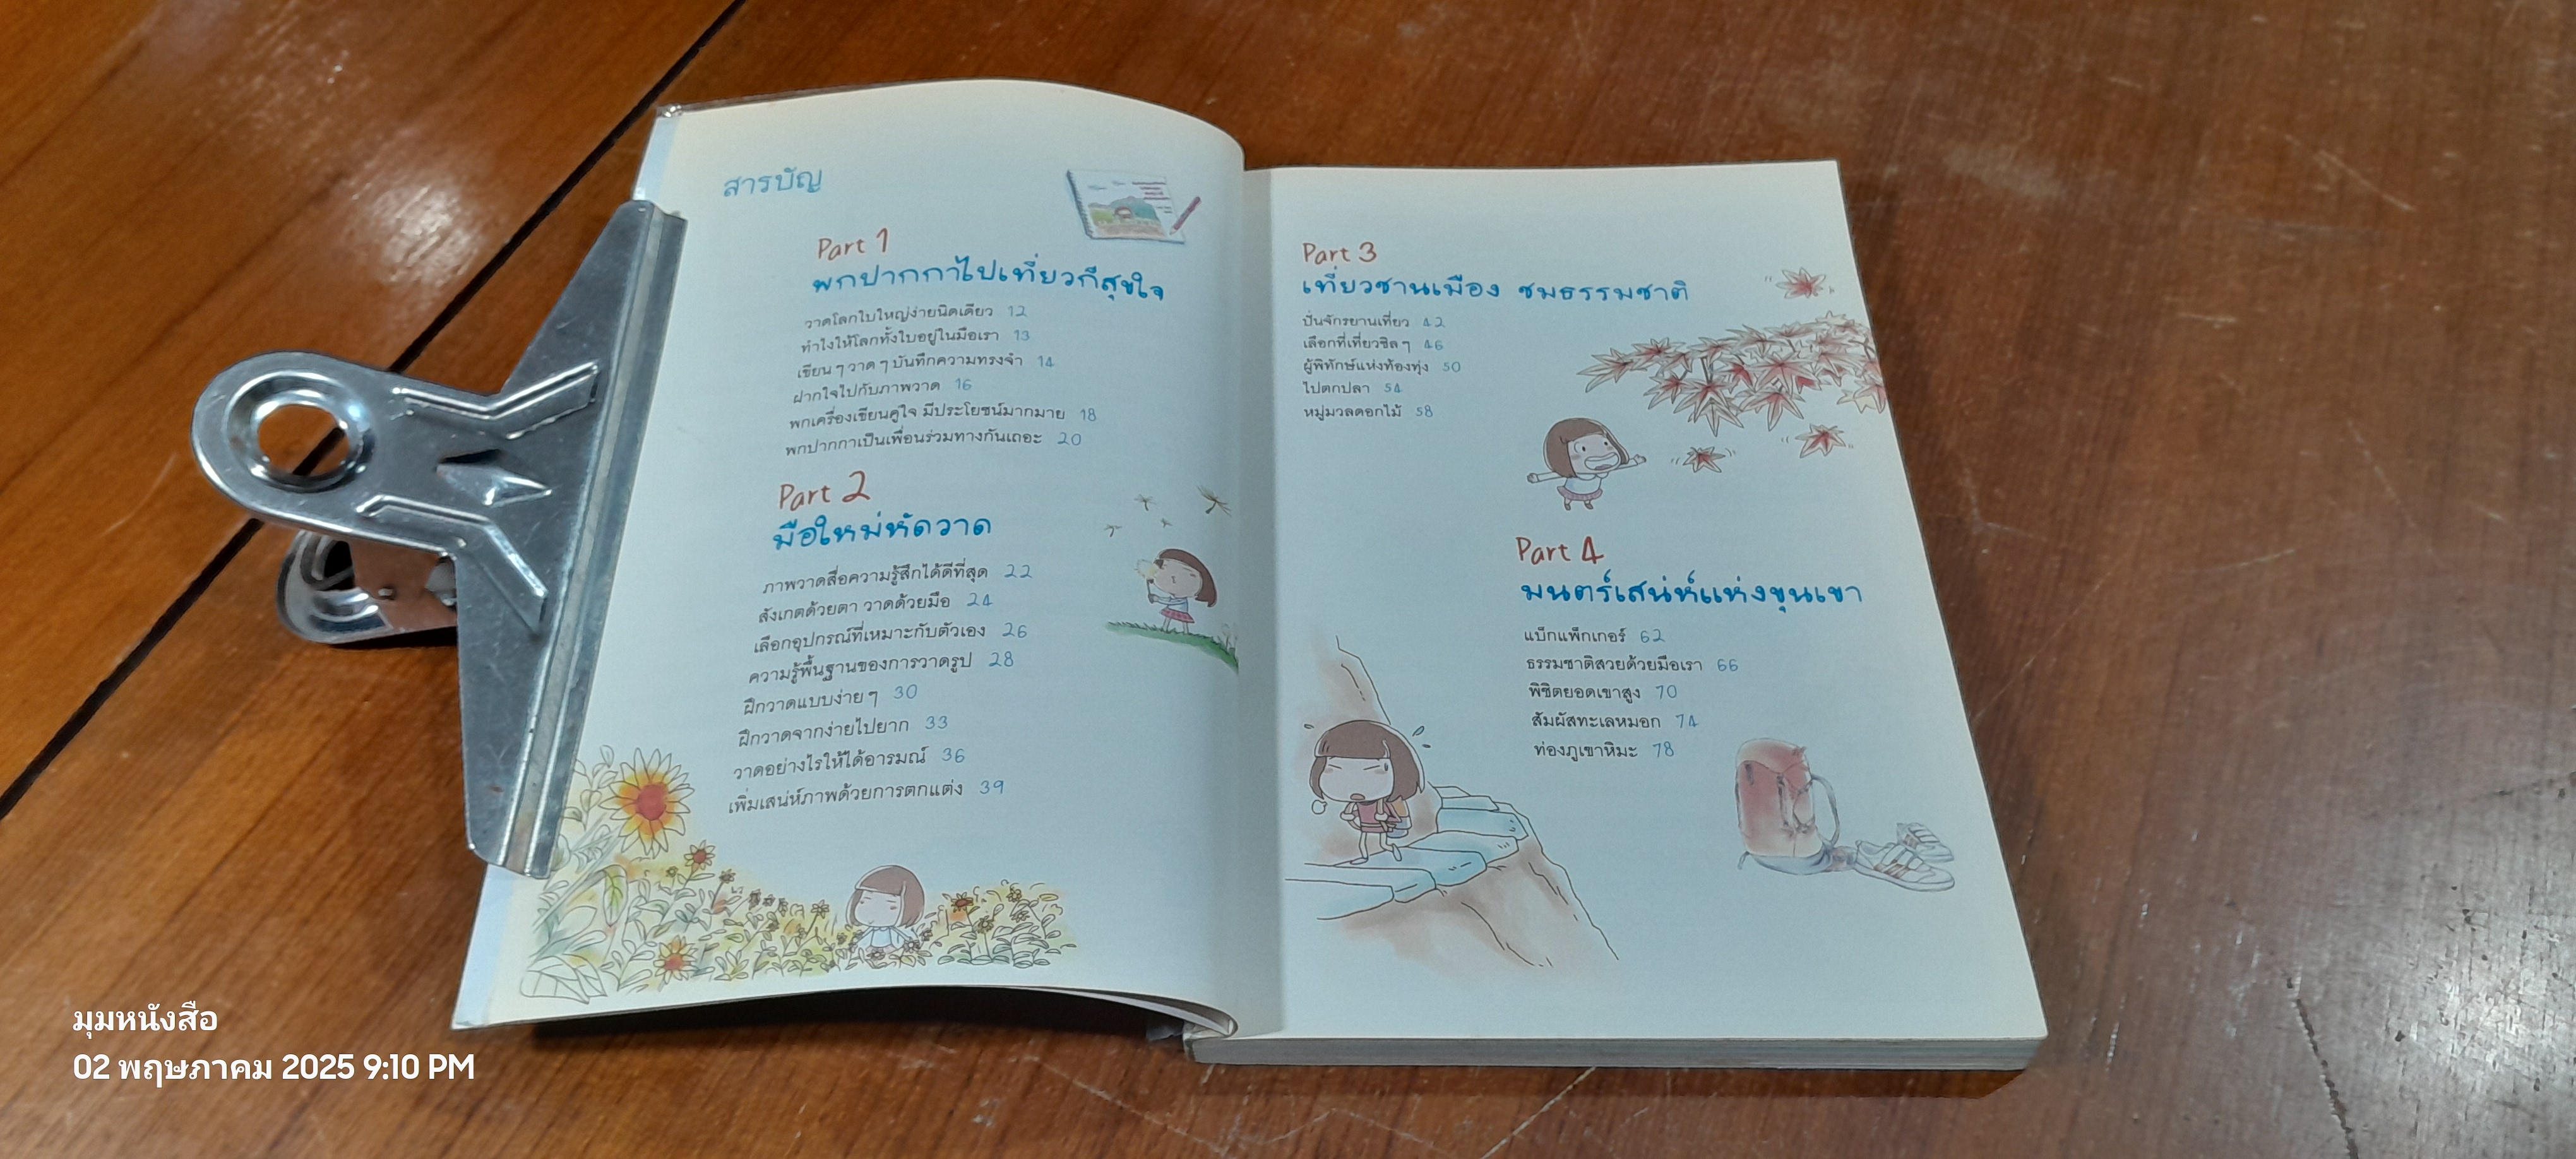 สารบัญ
Part 1
พกปากกาไปเที่ยวก็สุขใจ
วาดโลกใบใหญ่ง่ายนิดเดียว 12
ทำไงให้โลกทั้งใบอยู่ในมือเรา 13
เขียน ๆ วาด ๆ บันทึกความทรงจำ 14
ฝากใจไปกับภาพวาด 16
พกเครื่องเขียนคู่ใจ มีประโยชน์มากมาย 18
พกปากกาเป็นเพื่อนร่วมทางกันเถอะ 20
Part 2
มือใหม่หัดวาด
ภาพวาดสื่อความรู้สึกได้ดีที่สุด 22
สังเกตด้วยตา วาดด้วยมือ 24
เลือกอุปกรณ์ที่เหมาะกับตัวเอง 26
ความรู้พื้นฐานของการวาดรูป 28
ฝึกวาดแบบง่าย ๆ 30
ฝึกวาดจากง่ายไปยาก 33
วาดอย่างไรให้ได้อารมณ์ 36
เพิ่มเสน่ห์ภาพด้วยการตกแต่ง 39
Part 3
เที่ยวชานเมือง ชมธรรมชาติ
ปั่นจักรยานเที่ยว 42
เลือกที่เที่ยวชิล ๆ 46
ผู้พิทักษ์แห่งท้องทุ่ง 50
ไปตกปลา 54
หมู่มวลดอกไม้ 58
Part 4
มนตร์เสน่ห์แห่งขุนเขา
แบ็กแพ็กเกอร์ 62
ธรรมชาติสวยด้วยมือเรา 66
พิชิตยอดเขาสูง 70
สัมผัสทะเลหมอก 74
ท่องภูเขาหิมะ 78
มุมหนังสือ
02 พฤษภาคม 2025 9:10 PM